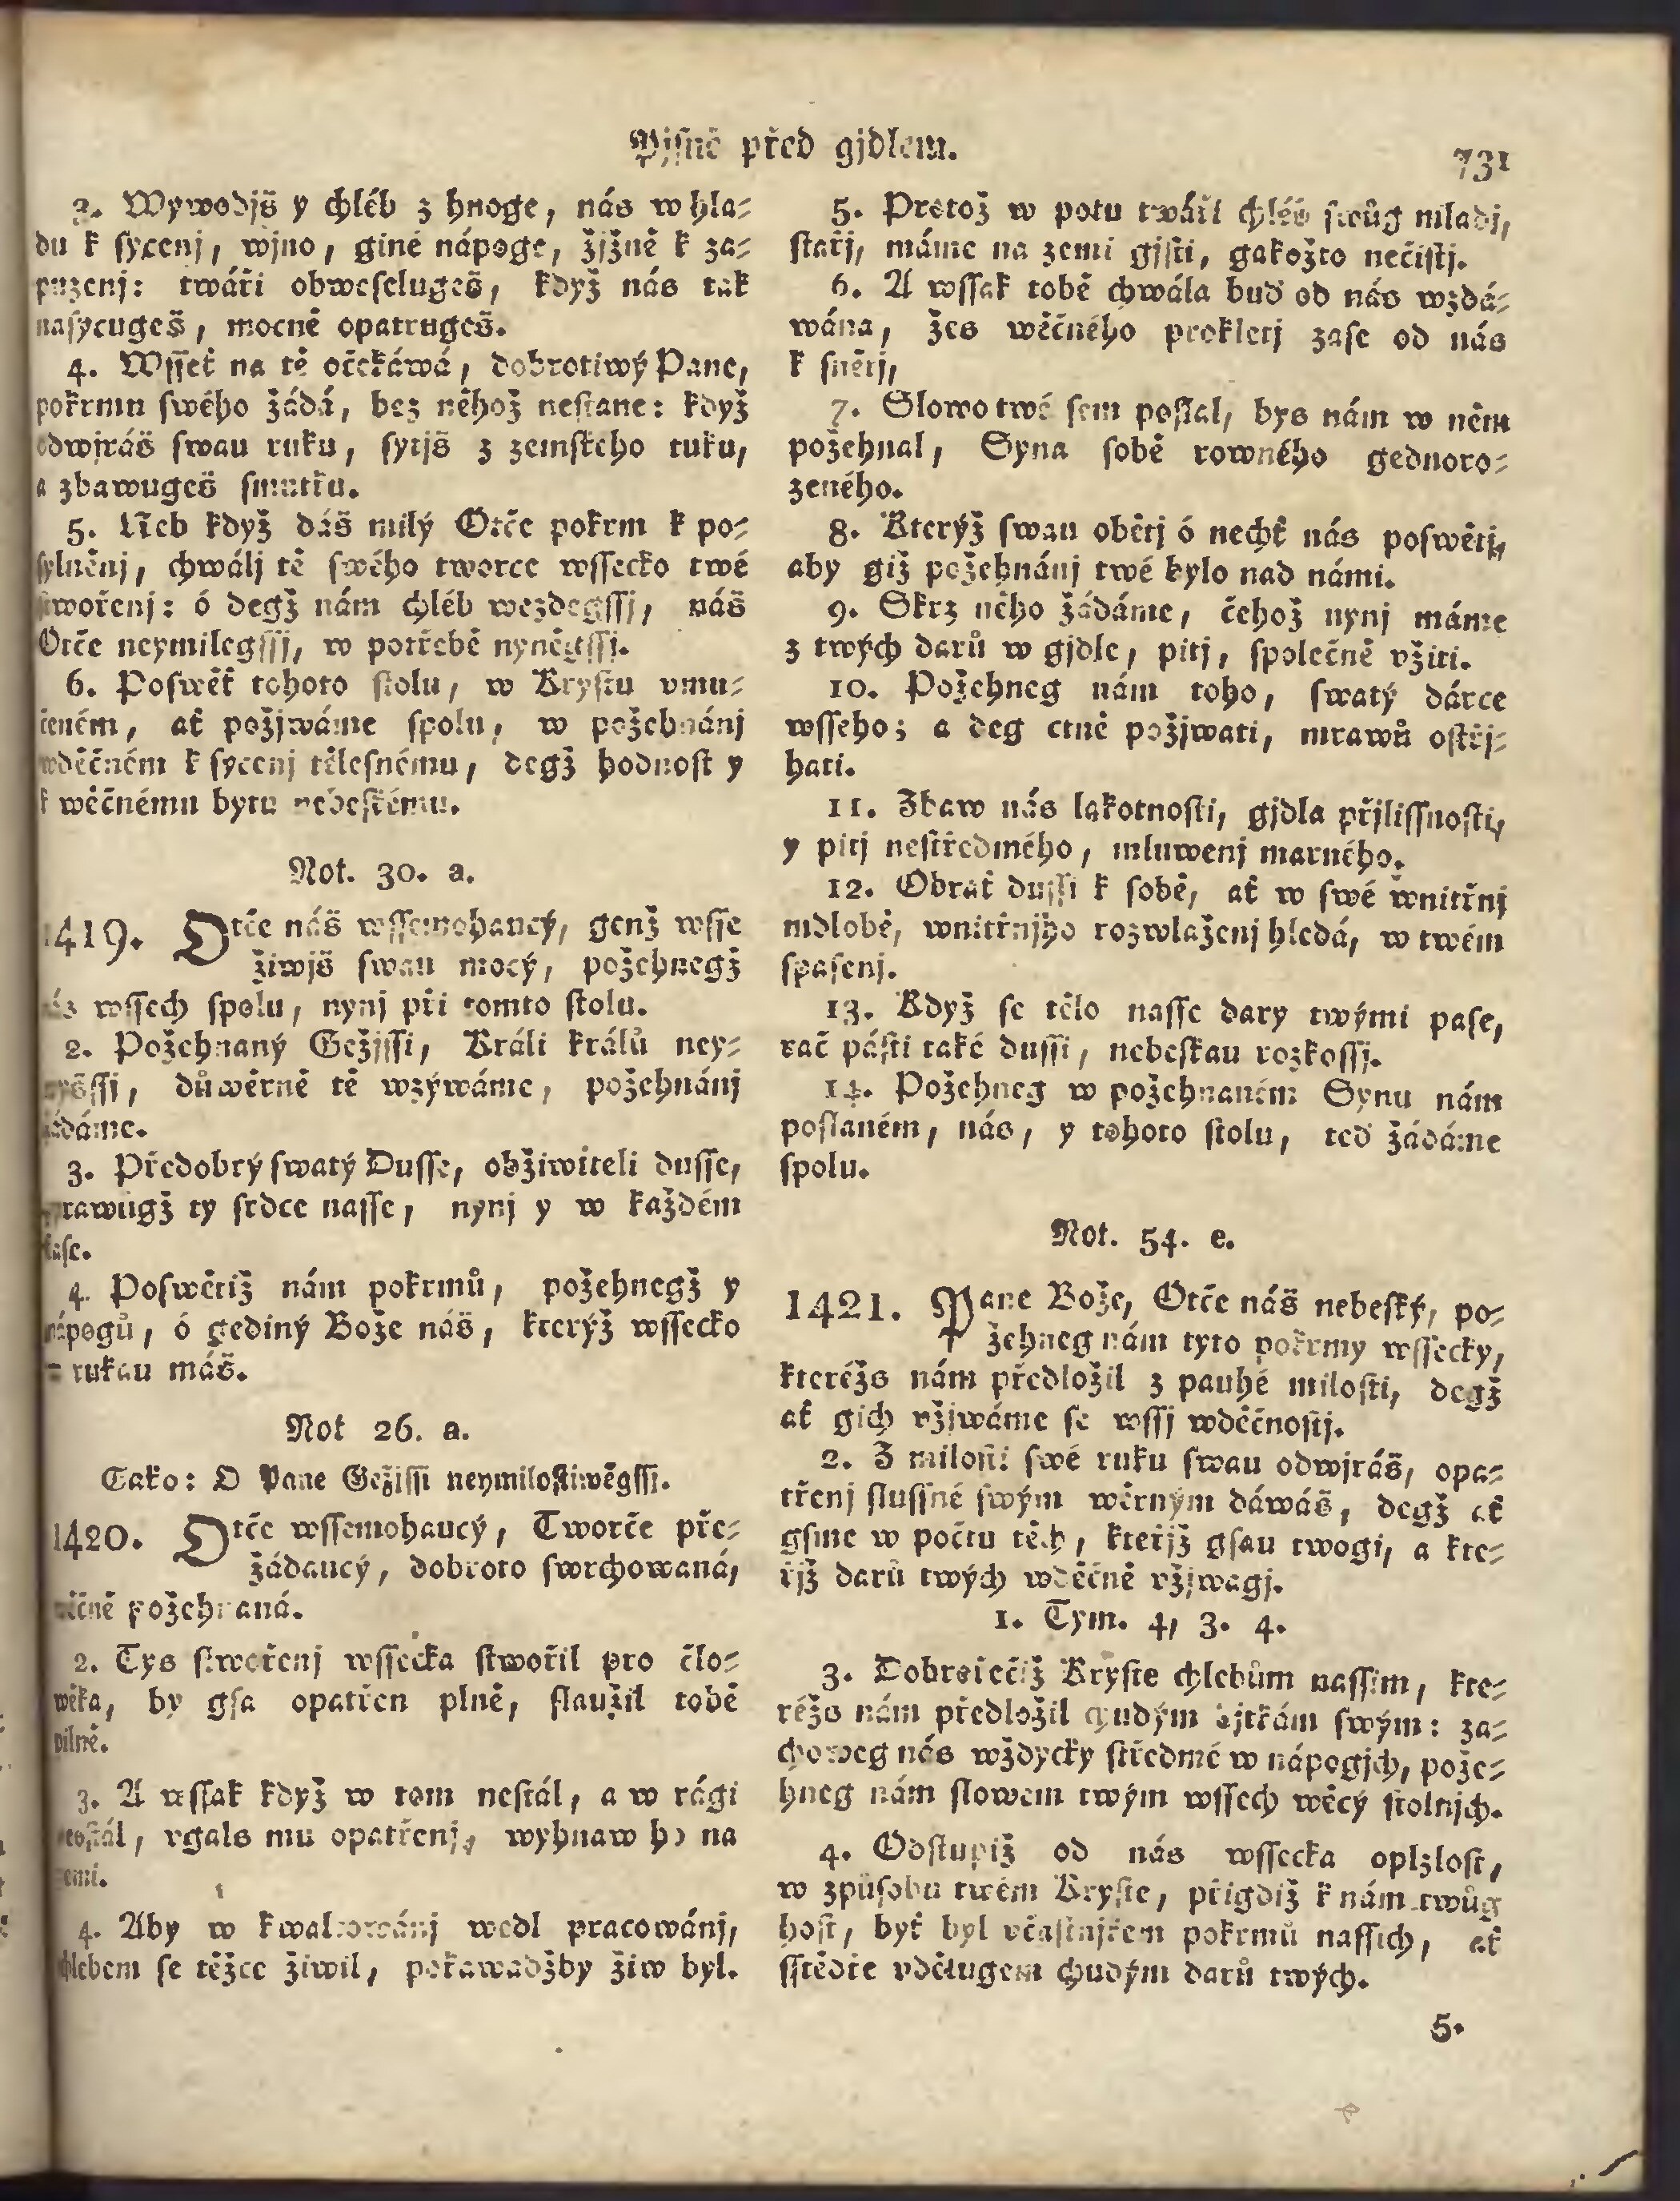 Pjsně před gjdlem.
731
3. Wywodjš y chléb z hnoge, nás w hla-
du k sycenj, wjno, giné nápoge, žjžně k za-
puzenj: twáři obweseluges̈, když nás tak
nasycugeš, mocně opatrugeš.
4. Wsseť na tě očekáwá, dobrotiwý Pane,
pokrmu swého žádá, bez něhož nestane: když
odwjráš swau ruku, sytjš z zemského tuku,
a zbawugeš smutku.
5. Neb když dáš milý Otče pokrm k po-
sylněnj, chwálj tě swého tworce wssecko twé
stwořenj: ó degž nám chléb wezdegssj, náš
Otče neymilegssj, w potřebě nyněgssj.
6. Poswěť tohoto stolu, w Krystu vmu-
čeném, ať požjwáme spolu, w požehnánj
wděčném k sycenj tělesnému, degž hodnost y
k wěčnému bytu nebeskému.
Not. 30. a.
1419. Otče náš wssemohaucý, genž wsse
žiwjš swau mocý, požehnegž
nás wssech spolu, nynj při tomto stolu.
2. Požehnaný Gežjssi, Králi králů ney-
wyšssi, důwěrně tě wzýwáme, požehnánj
žádáme.
3. Předobrý swatý Dusse, obžiwiteli dusse,
sprawůgž ty srdce nasse, nynj y w každém
čase.
4. Poswětiž nám pokrmů, požehnegž y
nápogů, ó gediný Bože náš, kterýž wssecko
rukau máš.
Not 26. a.
Tako: O Pane Gežissi neymilostiwěgssi.
1420. Otče wssemohaucý, Tworče pře-
žádaucý, dobroto swrchowaná,
wěčně požehnaná.
2. Tys stwořenj wssecka stwořil pro člo-
wěka, by gsa opatřen plně, slaužil tobě
pilně.
3. A wssak když w tom nestál, a w rági
neostál, vgals mu opatřenj, wyhnaw ho na
zemi.
4. Aby w kwaltowánj wedl pracowánj,
chlebem se těžce žiwil, pokawadžby žiw byl.
5. Protož w potu twáři chléb swůg mladj,
stařj, máme na zemi gjsti, gakožto nečistj.
6. A wssak tobě chwála buď od nás wzdá-
wána, žes wěčného prokletj zase od nás
k snětj,
7. Slowo twé sem poslal, bys nám w něm
požehnal, Syna sobě rowného gednoro-
zeného.
8. Kterýž swau obětj ó nechť nás poswětj,
aby giž požehnánj twé bylo nad námi.
9. Skrz něho žádáme, čehož nynj máme
z twých darů w gjdle, pitj, společně vžiti.
10. Požehneg nám toho, swatý dárce
wsseho; a deg ctně požjwati, mrawů ostřj-
hati.
11. Zbaw nás lakotnosti, gjdla přjlissnosti,
y pitj nestředmého, mluwenj marného.
12. Obrať dussi k sobě, ať w swé wnitřnj
mdlobě, wnitřnjho rozwlaženj hledá, w twém
spasenj.
13. Když se tělo nasse dary twými pase,
rač pásti také dussi, nebeskau rozkossj.
14. Požehneg w požehnaném Synu nám
poslaném, nás, y tohoto stolu, teď žádáme
spolu.
Not. 54. e.
1421. Pane Bože, Otče náš nebeský, po-
žehneg nám tyto pokrmy wssecky,
kteréžs nám předložil z pauhé milosti, degž
ať gich vžjwáme se wssj wděčnostj.
2. Z milosti swé ruku swau odwjráš, opa-
třenj slussné swým wěrným dáwáš, degž ať
gsme w počtu těch, kteřjž gsau twogi, a kte-
řjž darů twých wděčně vžjwagj.
1. Tym. 4, 3. 4.
3. Dobrořečiž Kryste chlebům nassim, kte-
réžs nám předložil chudým djtkám swým: za-
choweg nás wždycky středmé w nápogjch, pože-
hneg nám slowem twým wssech wěcý stolnjch.
4. Odstupiž od nás wssecka oplzlost,
w způsobu twém Kryste, přigdiž k nám twůg
host, byť byl včastnjkem pokrmů nassich, ať
sstědře vdělugem chudým darů twých.
5.